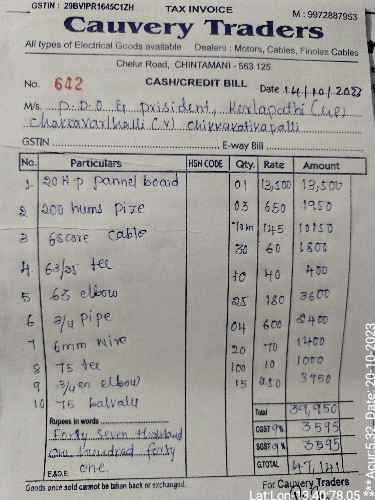 GSTIN : 29BVIPR1645C1ZH TAX INVOICE M : 9972887953
Cauvery Traders
All types of Electrical Goods available Dealers : Motors, Cables, Finolex Cables
Chelur Road, CHINTAMANI - 563 125.
No. 642 CASH/CREDIT BILL Date 14/10/2023
M/s. P.D.O & prisident, Korlapathi (G.P)
Chakravarthalli (V)
GSTIN E-way Bill
No. Particulars HSN CODE Qty. Rate Amount
1. 20 H.p pannel board 01 13,500 13,500
2 200 hums pize 03 650 1950
3 6score cable 70m 145 10150
4 63/25 tee 30 60 1800
5 63 elbow 10 40 400
6 3/4 pipe 25 180 3600
7 6mm wire 04 600 2400
8 75 tee 20 70 1400
9 3/4 en elbow 100 10 1000
10 75 balvalv 15 250 3750
Total 39,950
Rupees in words
CGST 9% 3595
Forty Seven thousand
SGST 9% 3595
one hundred forty
one.
G.TOTAL 47,141
E.&O.E.
Goods once sold cannot be taken back or exchanged. For Cauvery Traders
Lat:Lon:13.40:78.05
Acur:5.32 Date: 20-10-2023